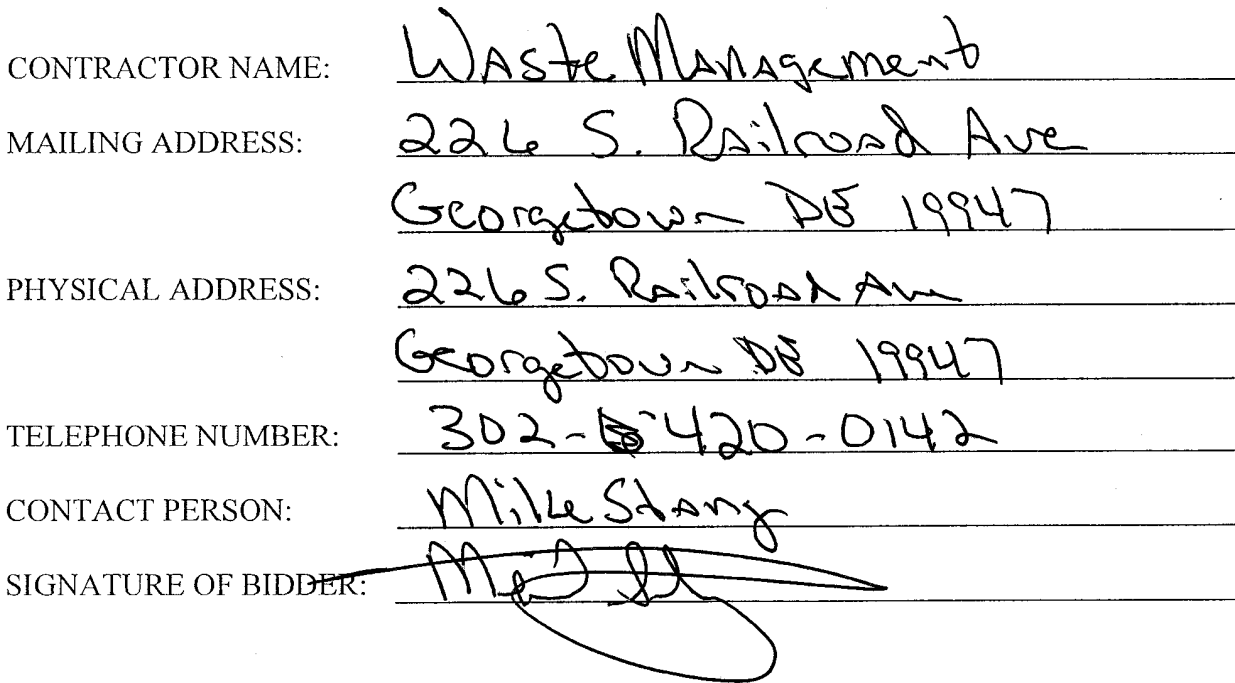 CONTRACTOR NAME: Waste Management
MAILING ADDRESS: 226 S. Railroad Ave
Georgetown DE 19947
PHYSICAL ADDRESS: 226 S. Railroad Ave
Georgetown DE 19947
TELEPHONE NUMBER: 302-420-0142
CONTACT PERSON: Mike Stang
SIGNATURE OF BIDDER: